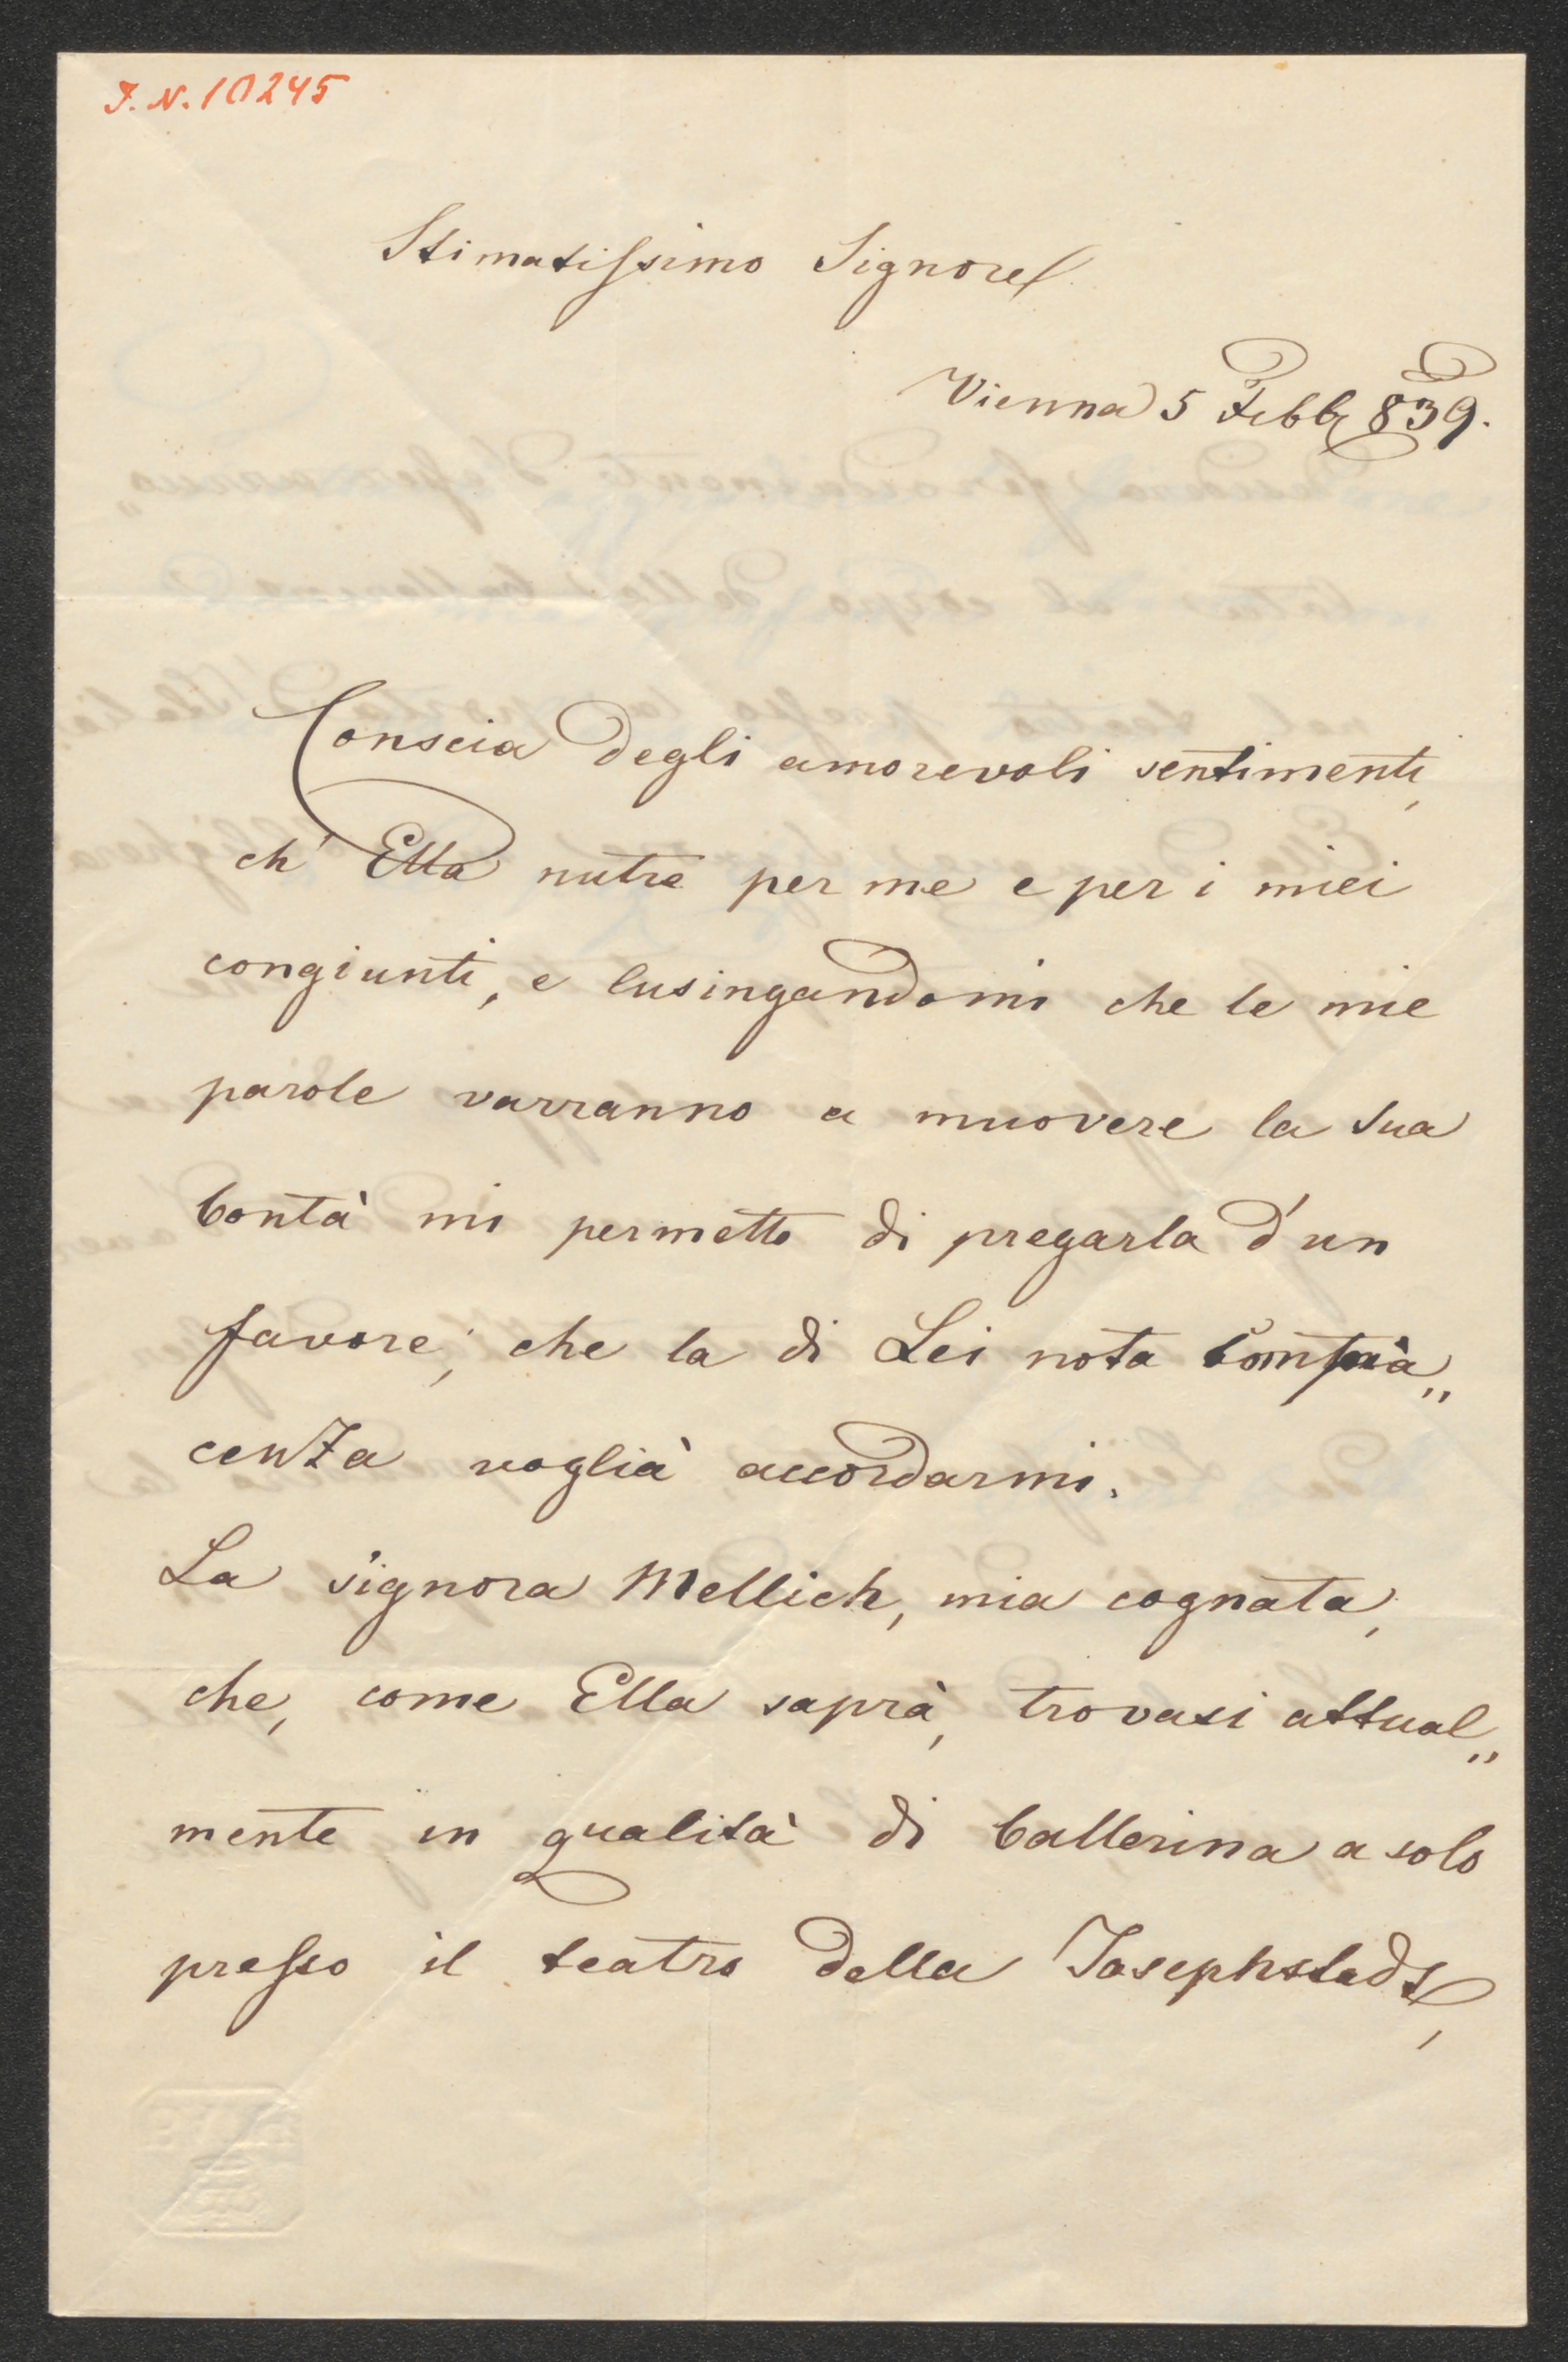 J. N. 10245
Stimatissimo Signore
Vienna 5 Febb 839.
Conscia degli amorevoli sentimenti,
ch' Ella nutre per me e per i miei
congiunti, e lusingandomi che le mie
parole varranno a muovere la sua
bontà mi permetto di pregarla d'un
favore, che la di Lei nota compia„
cenza voglià accordarmi.
La signora Mellich, mia cognata,
che, come Ella saprà, trovasi attual„
mente in qualità di ballerina a solo
presso il teatro della Josephstadt,